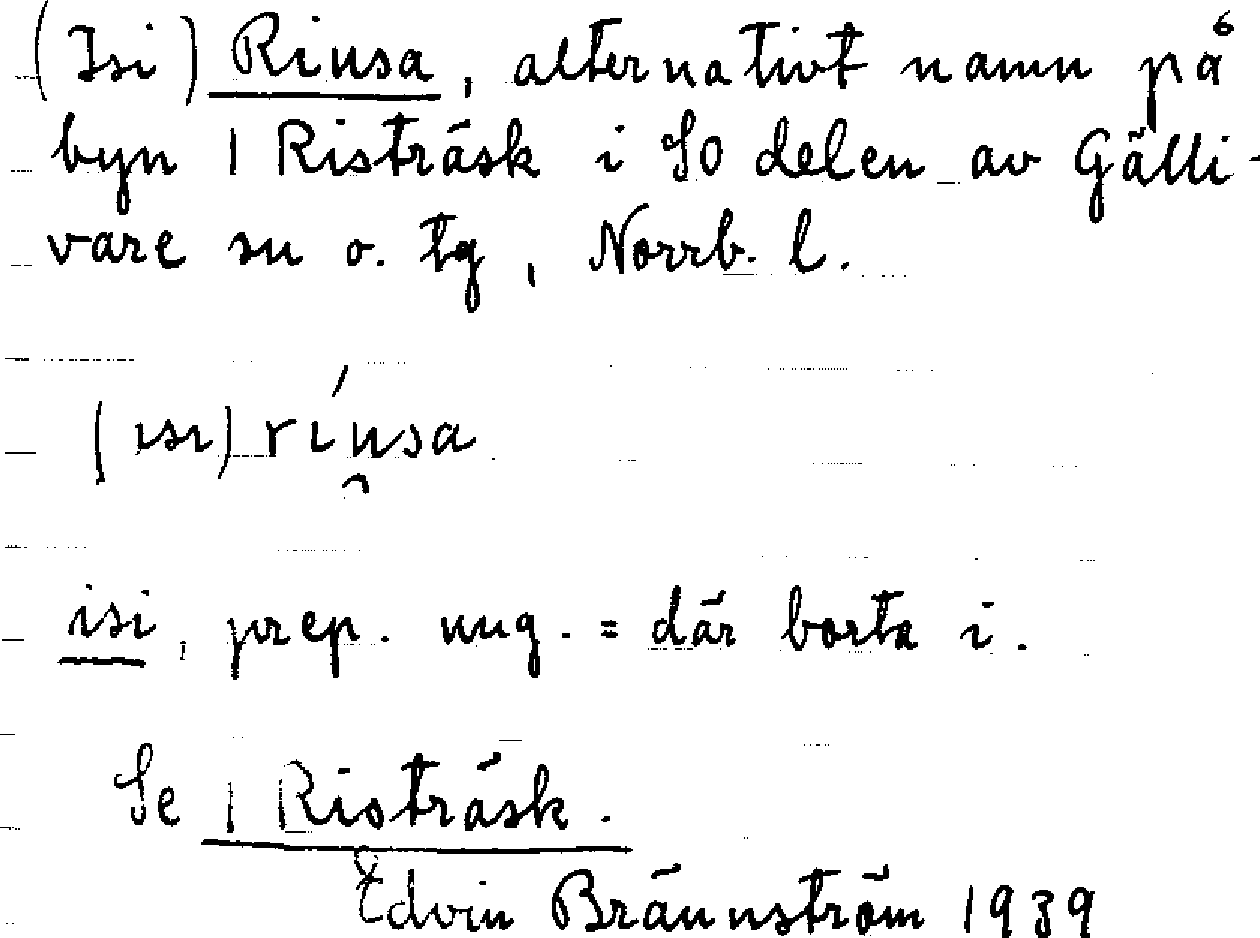 (Isi) Rinsa, alternativt namn på
byn 1 Risträsk i SO delen av Gälli-
vare sn o. tg, Norrb. l.
(isi) rinsa
isi, prep. ung. = där borta i.
Se 1 Risträsk.
Edvin Brännström 1939